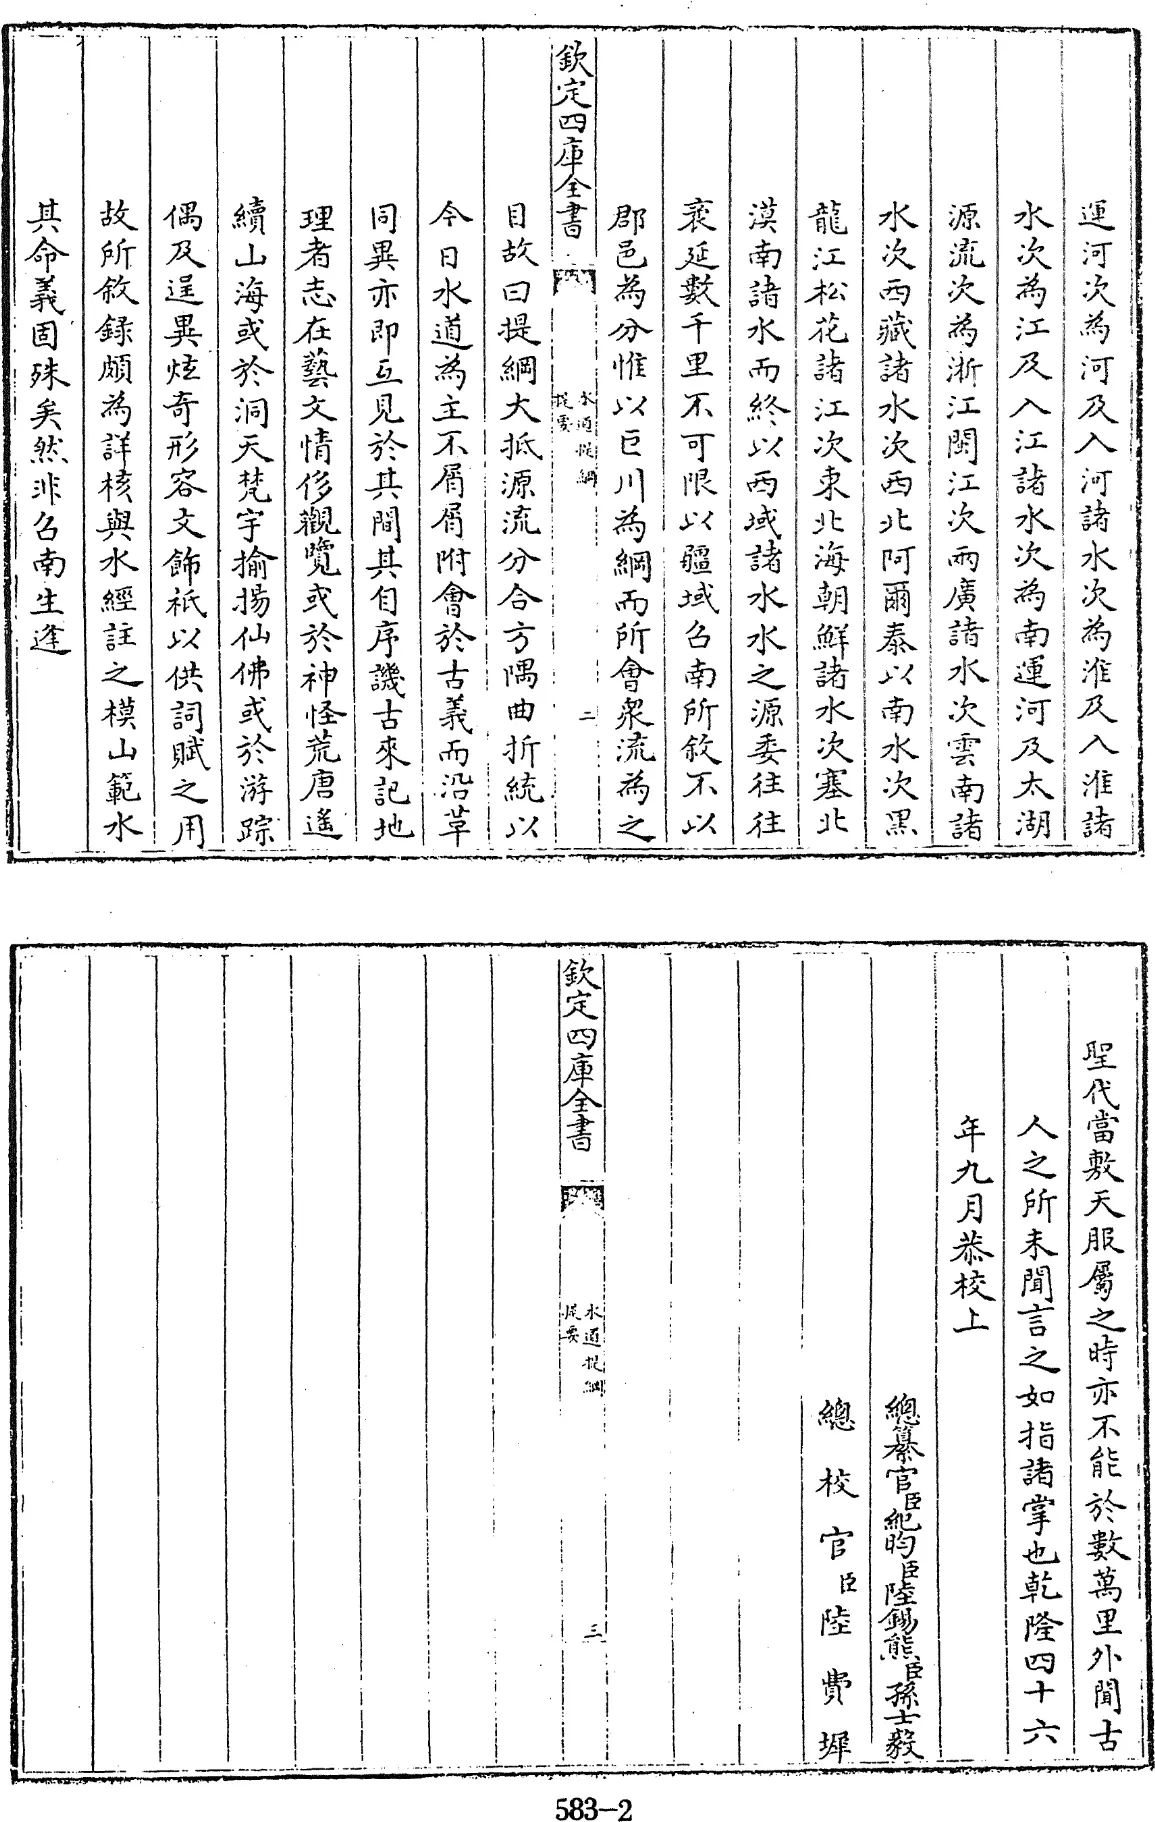 運河次為河及入河諸水次為淮及入淮諸
水次為江及入江諸水次為南運河及太湖
源流次為浙江閩江次兩廣諸水次雲南諸
水次西藏諸水次西北阿爾泰以南水次黑
龍江松花諸江次東北海朝鮮諸水次塞北
漠南諸水而終以西域諸水水之源委往往
袤延數千里不可限以疆域召南所敘不以
郡邑為分惟以巨川為綱而所會衆流為之
欽定四庫全書
水道提綱
提要
二
目故曰提綱大抵源流分合方隅曲折統以
今日水道為主不屑屑附會於古義而沿革
同異亦即互見於其間其自序譏古來記地
理者志在藝文情侈觀覽或於神怪荒唐遙
續山海或於洞天梵宇揄揚仙佛或於游踪
偶及逞異炫奇形容文飾祇以供詞賦之用
故所敘録頗為詳核與水經註之模山範水
其命義固殊矣然非召南生逢
聖代當敷天服屬之時亦不能於數萬里外聞古
人之所未聞言之如指諸掌也乾隆四十六
年九月恭校上
總纂官臣紀昀臣陸錫熊臣孫士毅
總校官臣陸費墀
欽定四庫全書
水道提綱
提要
三
583-2